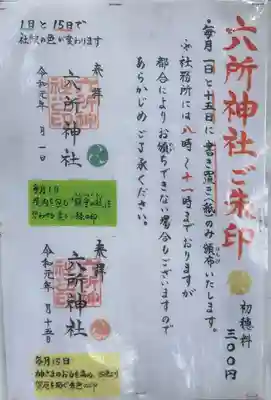 六所神社ご朱印
初穂料
三〇〇円
・毎月一日と十五日に書き置き(紙)のみ頒布いたします。
はんぷ
※社務所には八時〜十一時までおりますが
都合によりお頒ちできない場合もございますので
あらかじめご了承ください。
1日と15日で
社紋の色が変わります
奉拝
六所神社
令和元年 月一日
毎月1日
奉拝
六所神社
令和元年 月十五日
毎月15日